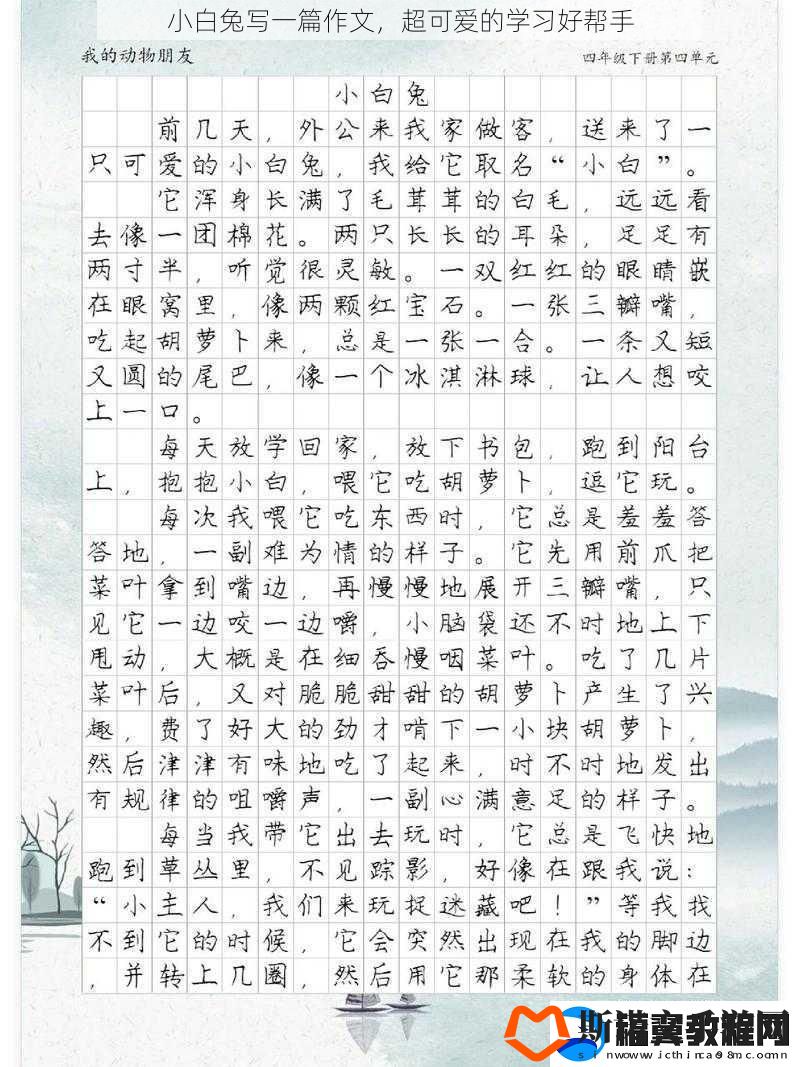 小白兔写一篇作文，超可爱的学习好帮手
我的动物朋友
四年级下册第四单元
小白兔
前几天，外公来我家做客，送来了一
只可爱的小白兔，我给它取名“小白”。
它浑身长满了毛茸茸的白毛，远远看
去像一团棉花。两只长长的耳朵，足足有
两寸半，听觉很灵敏。一双红红的眼睛嵌
在眼窝里，像两颗红宝石。一张三瓣嘴，
吃起胡萝卜来，总是一张一合。一条又短
又圆的尾巴，像一个冰淇淋球，让人想咬
上一口。
每天放学回家，放下书包，跑到阳台
上，抱抱小白，喂它吃胡萝卜，逗它玩。
每次我喂它吃东西时，它总是羞羞答
答地，一副难为情的样子。它先用前爪把
菜叶拿到嘴边，再慢慢地展开三瓣嘴，只
见它一边咬一边嚼，小脑袋还不时地上下
甩动，大概是在细吞慢咽菜叶。吃了几片
菜叶后，又对脆脆甜甜的胡萝卜产生了兴
趣，费了好大的劲才啃下一小块胡萝卜，
然后津津有味地吃了起来，时不时地发出
有规律的咀嚼声，一副心满意足的样子。
每当我带它出去玩时，它总是飞快地
跑到草丛里，不见踪影，好像在跟我说：
“小主人，我们来玩捉迷藏吧！”等我找
不到它的时候，它会突然出现在我的脚边
，并转上几圈，然后用它那柔软的身体在